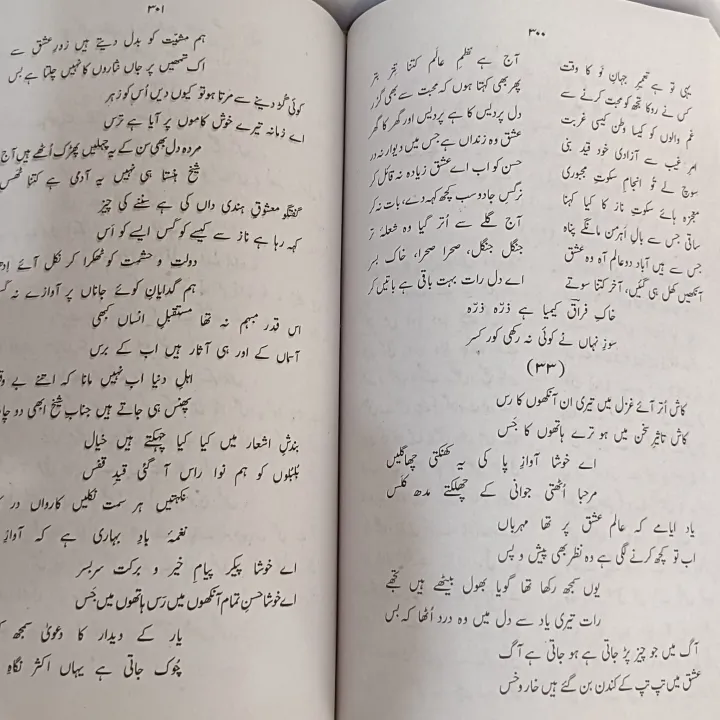 ۳۰۰
یہی تو ہے تعمیرِ جہانِ نَو کا وقت آج ہے نظمِ عالم کتنا تِتّر بِتّر
کس نے روکا تجھ کو محبت کرنے سے پھر بھی کہتا ہوں کہ محبت سے بھی گزر
غم والوں کو کیسا وطن کیسی غربت دل پردیس کا ہے پردیس اور گھر کا گھر
امرِ غیب سے آزادی خود قید بنی عشق وہ زنداں ہے جس میں دیوار نہ در
سوچ لے تو انجامِ سکوتِ مجبوری حسن کو اب اے عشق زیادہ نہ قائل کر
معجزہ ہائے سکوتِ ناز کا کیا کہنا نرگسِ جادو سب کچھ کہہ دے، بات نہ کر
ساقی جس سے بالِ اہرمن مانگے پناہ آج گلے سے اُتر گیا وہ شعلۂ تر
جس سے ہیں آباد دو عالم آہ وہ عشق جنگل جنگل، صحرا صحرا، خاک بسر
آنکھیں کھل ہی گئیں، آخر کتنا سوتے اے دل رات بہت باقی ہے باتیں کر
خاکِ فراقؔ کیمیا ہے ذرّہ ذرّہ
سوزِ نہاں نے کوئی نہ رکھی کور کسر
(۳۳)
کاش اُتر آئے غزل میں تیری ان آنکھوں کا رس
کاش تاثیرِ سخن میں ہو ترے ہاتھوں کا جَس
اے خوشا آوازِ پا کی یہ کھنکتی چھاگلیں
مرحبا اُٹھتی جوانی کے چھلکتے مدھ کلس
یاد ایامے کہ عالم عشق پر تھا مہرباں
اب تو کچھ کرنے لگی ہے وہ نظر بھی پیش و پس
یوں سمجھ رکھا تھا گویا بھول بیٹھے ہیں تجھے
رات تیری یاد سے دل میں وہ درد اُٹھا کہ بس
آگ میں جو چیز پڑ جاتی ہے ہو جاتی ہے آگ
عشق میں تپ تپ کے کندن بن گئے ہیں خار و خس
۳۰۱
ہم مشیّت کو بدل دیتے ہیں زورِ عشق سے
اک تمھیں پر جاں نثاروں کا نہیں چلتا ہے بس
کوئی گُڑ دینے سے مرتا ہو تو کیوں دیں اُس کو زہر
اے زمانہ تیرے خوش کاموں پر آیا ہے ترس
مردہ دل بھی سن کے یہ چہلیں پھڑک اُٹھے ہیں آج
شیخ ہنستا ہی نہیں یہ آدمی ہے کتنا ٹھس
گفتگو معشوقِ ہندی داں کی ہے سننے کی چیز
کہہ رہا ہے ناز سے کیسے کو کس ایسے کو اَس
دولت و حشمت کو ٹھکرا کر نکل آئے
ہم گدایانِ کوئے جاناں پر آوازے نہ
اس قدر مبہم نہ تھا مستقبلِ انساں کبھی
آسماں کے اور ہی آثار ہیں اب کے برس
اہلِ دنیا اب نہیں مانا کہ اتنے بے
پھنس ہی جاتے ہیں جنابِ شیخ ابھی دو
بندشِ اشعار میں کیا کیا چہکتے ہیں خیال
بلبلوں کو ہم نوا راس آ گئی قیدِ قفس
نکہتیں ہر سمت نکلیں کارواں در
نغمۂ بادِ بہاری ہے کہ آوازِ
اے خوشا پیکر پیامِ خیر و برکت سربسر
اے خوشا حسنِ تمام آنکھوں میں رس ہاتھوں میں جَس
یار کے دیدار کا دعویٰ سمجھ
چُوک جاتی ہے یہاں اکثر نگاہِ